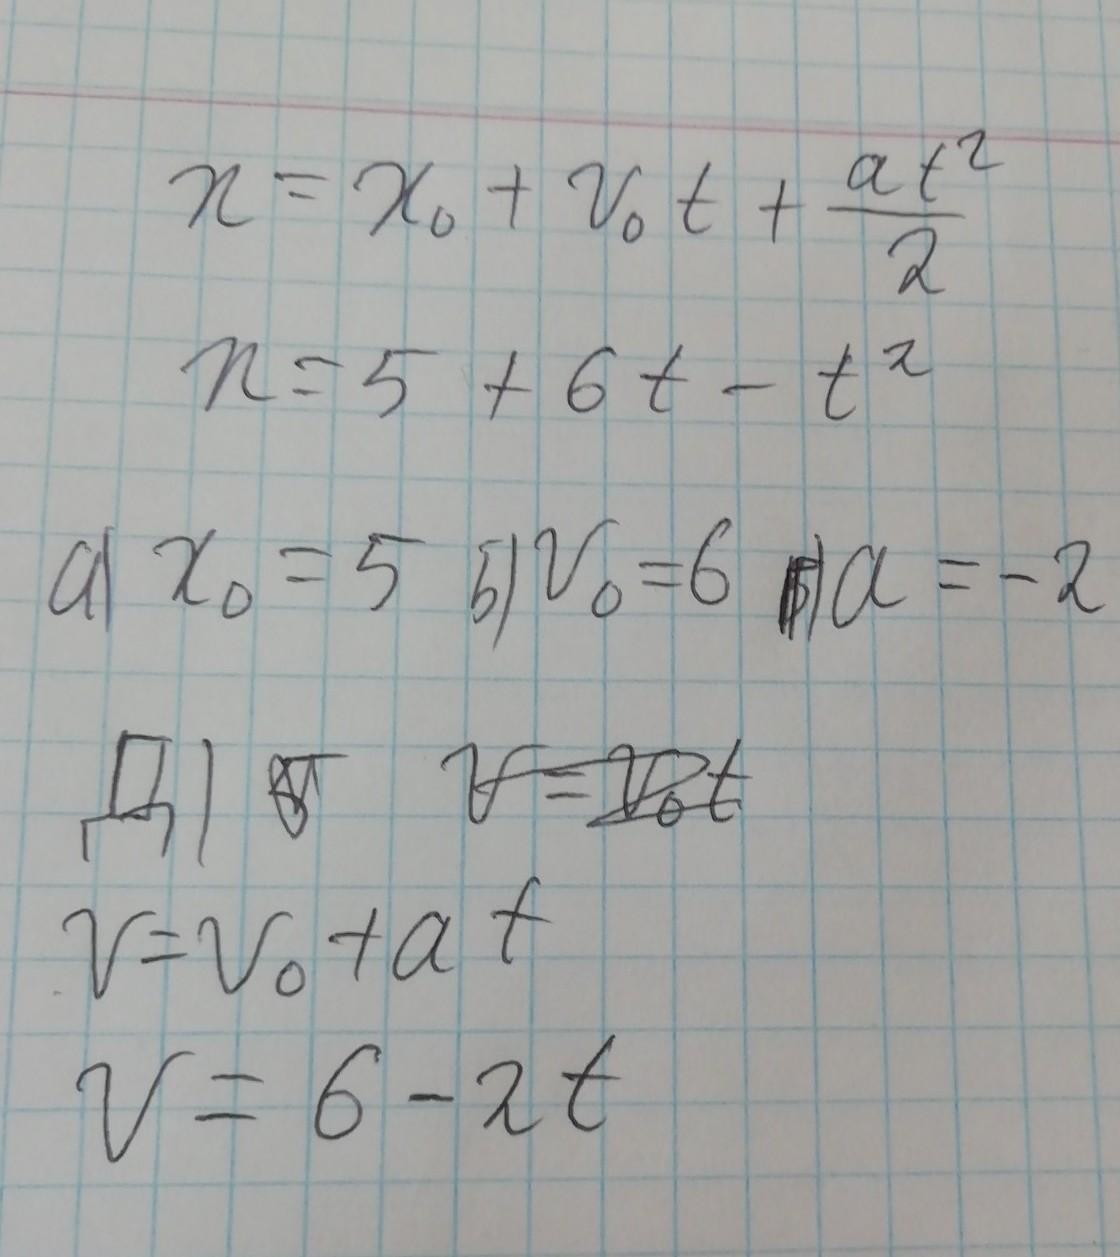 x = x₀ + v₀ t + at²/2
x = 5 + 6t - t²
а) x₀ = 5 б) v₀ = 6 в) a = -2
Д) v = v₀t
v = v₀ + a t
v = 6 - 2t